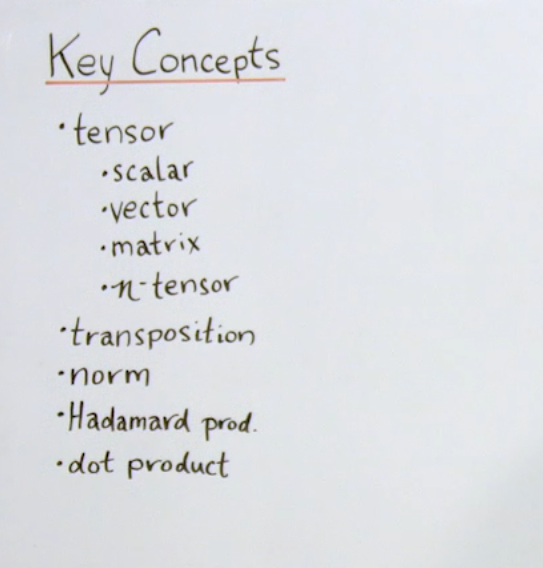 Key Concepts
· tensor
· scalar
· vector
· matrix
· n-tensor
· transposition
· norm
· Hadamard prod.
· dot product